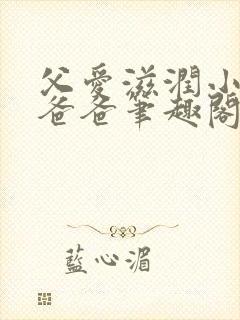 父愛滋潤小
爸爸筆趣閣
藍心湄